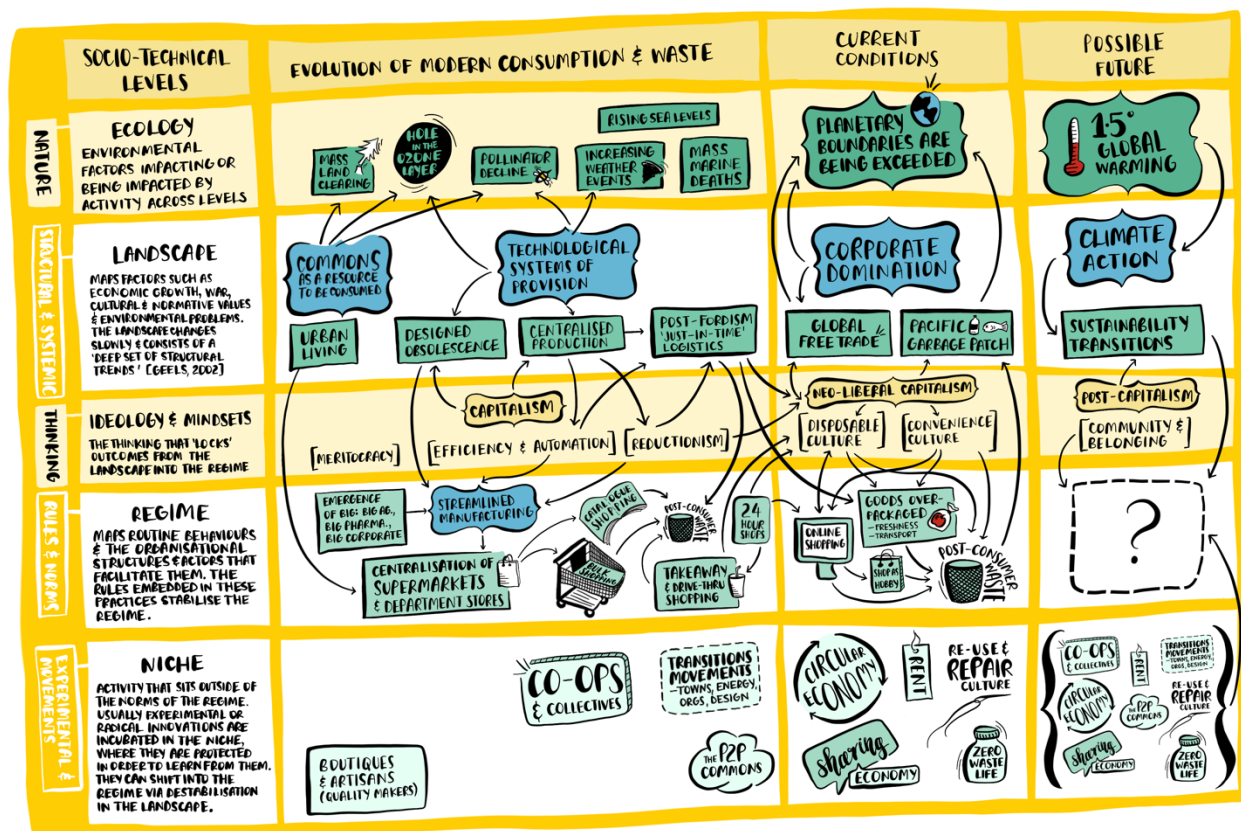 SOCIO-TECHNICAL
LEVELS
EVOLUTION OF MODERN CONSUMPTION & WASTE
CURRENT
CONDITIONS
POSSIBLE
FUTURE
NATURE
ECOLOGY
ENVIRONMENTAL
FACTORS IMPACTING OR
BEING IMPACTED BY
ACTIVITY ACROSS LEVELS
MASS
LAND
CLEARING
HOLE
IN THE
OZONE
LAYER
POLLINATOR
DECLINE
RISING SEA LEVELS
INCREASING
WEATHER
EVENTS
MASS
MARINE
DEATHS
PLANETARY
BOUNDARIES ARE
BEING EXCEEDED
1.5°
GLOBAL
WARMING
STRUCTURAL & SYSTEMIC
LANDSCAPE
MAPS FACTORS SUCH AS
ECONOMIC GROWTH, WAR,
CULTURAL & NORMATIVE VALUES
& ENVIRONMENTAL PROBLEMS.
THE LANDSCAPE CHANGES
SLOWLY & CONSISTS OF A
'DEEP SET OF STRUCTURAL
TRENDS' [GEELS, 2002]
COMMONS
AS A RESOURCE
TO BE CONSUMED
TECHNOLOGICAL
SYSTEMS OF
PROVISION
URBAN
LIVING
DESIGNED
OBSOLESCENCE
CENTRALISED
PRODUCTION
POST-FORDISM
'JUST-IN-TIME'
LOGISTICS
CORPORATE
DOMINATION
GLOBAL
FREE TRADE
PACIFIC
GARBAGE PATCH
CLIMATE
ACTION
SUSTAINABILITY
TRANSITIONS
THINKING
IDEOLOGY & MINDSETS
THE THINKING THAT 'LOCKS'
OUTCOMES FROM THE
LANDSCAPE INTO THE REGIME
CAPITALISM
[MERITOCRACY]
[EFFICIENCY & AUTOMATION]
[REDUCTIONISM]
NEO-LIBERAL CAPITALISM
[DISPOSABLE
CULTURE]
[CONVENIENCE
CULTURE]
POST-CAPITALISM
[COMMUNITY &
BELONGING]
RULES & NORMS
REGIME
MAPS ROUTINE BEHAVIOURS
& THE ORGANISATIONAL
STRUCTURES & ACTORS THAT
FACILITATE THEM. THE
RULES EMBEDDED IN THESE
PRACTICES STABILISE THE
REGIME.
EMERGENCE
OF BIG: BIG AG.,
BIG PHARMA.,
BIG CORPORATE
STREAMLINED
MANUFACTURING
CATALOGUE
SHOPPING
POST-CONSUMER
WASTE
24
HOUR
SHOPS
CENTRALISATION OF
SUPERMARKETS
& DEPARTMENT STORES
BULK
SHOPPING
TAKEAWAY
& DRIVE-THRU
SHOPPING
ONLINE
SHOPPING
GOODS OVER-
PACKAGED
-FRESHNESS
-TRANSPORT
SHOP AS
HOBBY
POST-CONSUMER
WASTE
?
EXPERIMENTAL &
MOVEMENTS
NICHE
ACTIVITY THAT SITS OUTSIDE OF
THE NORMS OF THE REGIME.
USUALLY EXPERIMENTAL OR
RADICAL INNOVATIONS ARE
INCUBATED IN THE NICHE,
WHERE THEY ARE PROTECTED
IN ORDER TO LEARN FROM THEM.
THEY CAN SHIFT INTO THE
REGIME VIA DESTABILISATION
IN THE LANDSCAPE.
BOUTIQUES
& ARTISANS
(QUALITY MAKERS)
CO-OPS
& COLLECTIVES
TRANSITIONS
MOVEMENTS
-TOWNS, ENERGY,
ORGS, DESIGN
THE P2P
COMMONS
CIRCULAR
ECONOMY
RENT
RE-USE &
REPAIR
CULTURE
sharing
ECONOMY
ZERO
WASTE
LIFE
CO-OPS
& COLLECTIVES
RENT
TRANSITIONS
MOVEMENTS
-TOWNS, ENERGY,
ORGS, DESIGN
CIRCULAR
ECONOMY
THE P2P
COMMONS
RE-USE &
REPAIR
CULTURE
sharing
ECONOMY
ZERO
WASTE
LIFE